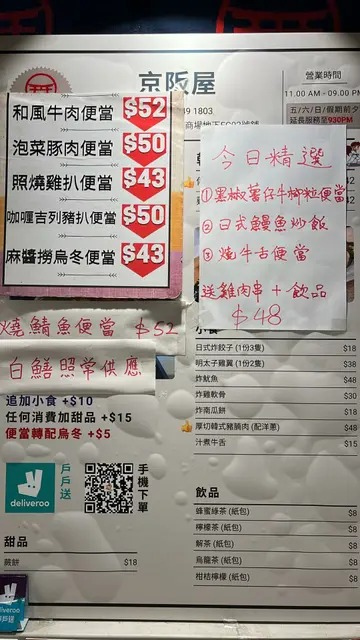 京阪屋
營業時間
11.00 AM - 09.00 PM
五/六/日/假期前夕
延長服務至930PM
和風牛肉便當 $52
泡菜豚肉便當 $50
照燒雞扒便當 $43
咖喱吉列豬扒便當 $50
麻醬撈烏冬便當 $43
今日精選
①黑椒薯仔牛柳粒便當
②日式鰻魚炒飯
③燒牛舌便當
送雞肉串+飲品
$48
燒鯖魚便當 $52
白鱔照常供應
追加小食 +$10
任何消費加甜品 +$15
便當轉配烏冬 +$5
deliveroo
戶戶送
手機下單
甜品
蕨餅 $18
小食
日式炸餃子 (1份3隻) $18
明太子雞翼 (1份2隻) $38
炸魷魚 $48
炸雞軟骨 $30
炸南瓜餅 $18
厚切韓式豬腩肉 (配洋蔥) $48
汁煮牛舌 $15
飲品
蜂蜜綠茶 (紙包) $8
檸檬茶 (紙包) $8
解茶 (紙包) $8
烏龍茶 (紙包) $8
柑桔檸檬 (紙包) $8